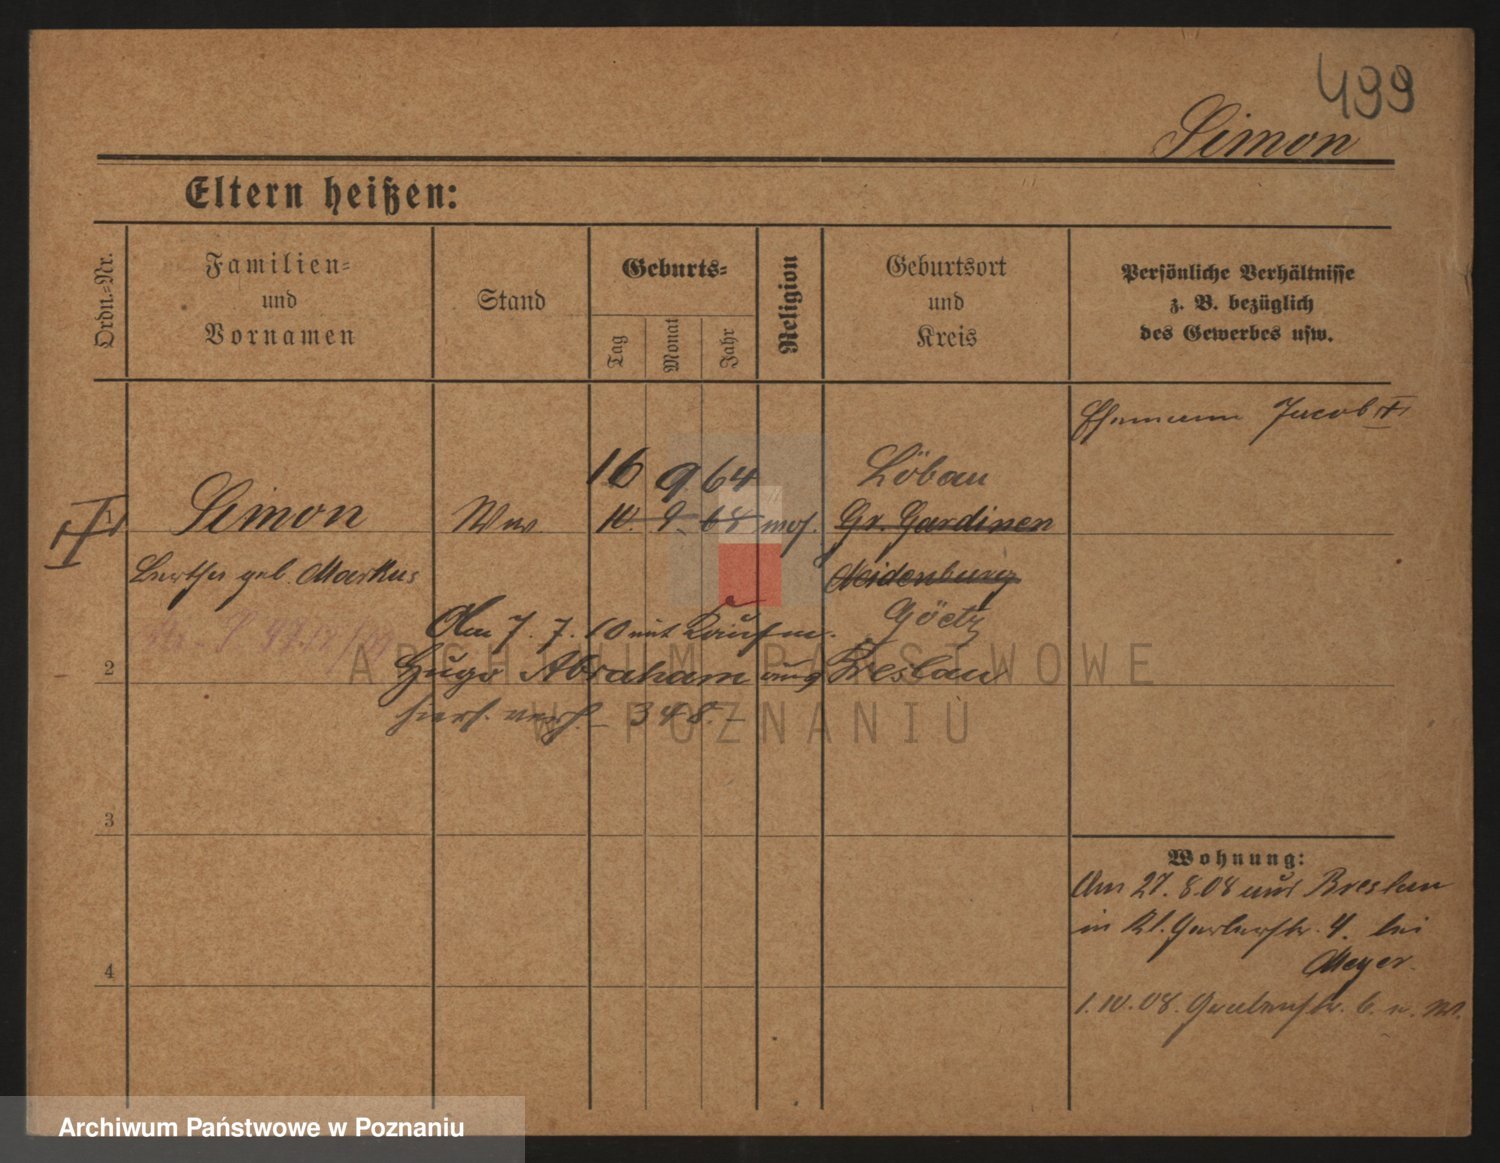 499
Simon
Eltern heißen:
Ordn.-Nr.
Familien-
und
Vornamen
Stand
Geburts-
Tag
Monat
Jahr
Religion
Geburtsort
und
Kreis
Persönliche Verhältnisse
z. B. bezüglich
des Gewerbes usw.
Ehemann Jacob †
16 9 64 Löbau
Simon Ww. 10. 9. 68 mos. Gr. Gardinen
Bertha geb. Markus Neidenburg
Am 7. 7. 10 mit Kaufm. Goetz
2
Hugo Abraham aus Breslau
hier verh. - 348. -
3
4
Wohnung:
Am 27. 8. 08 aus Breslau
in Kl. Gerberstr. 4. bei
Meyer.
1. 10. 08. Grabenstr. 6. n. W.
ARCHIWUM PAŃSTWOWE
W POZNANIU
Archiwum Państwowe w Poznaniu